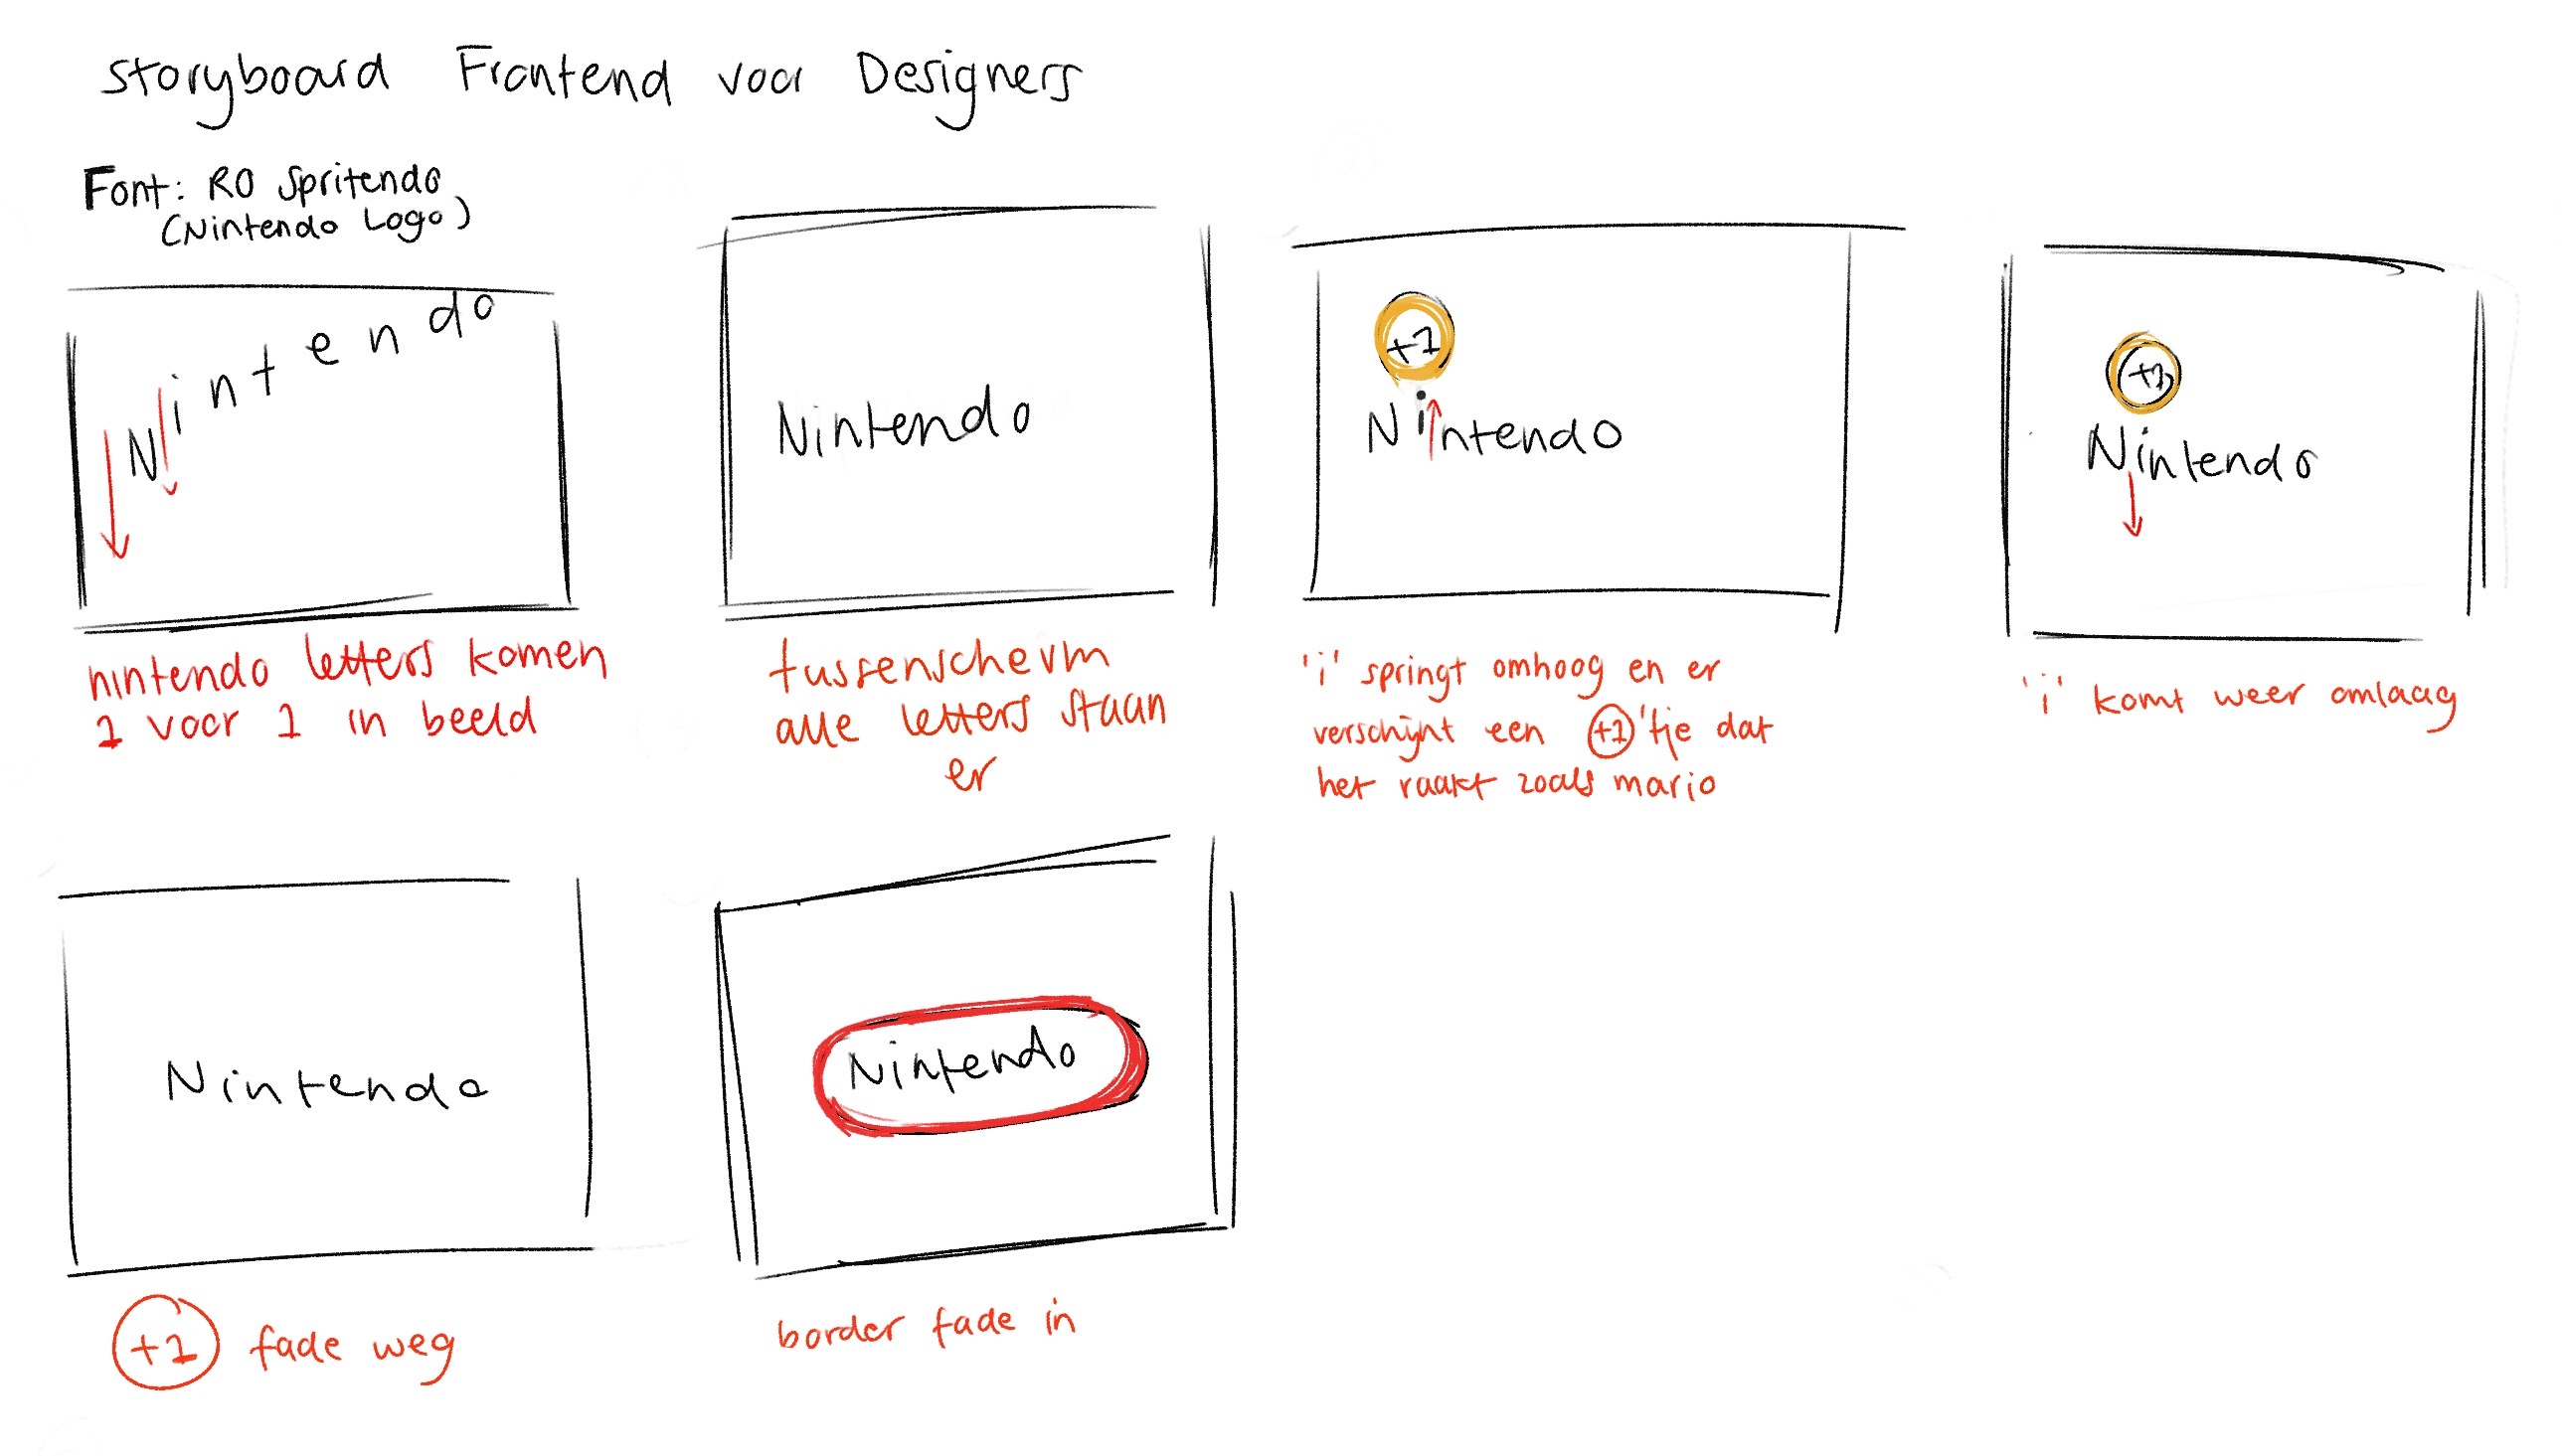 Storyboard Frontend voor Designers
Font: RO Spritendo
(Nintendo Logo)
Nintendo
nintendo letters komen
1 voor 1 in beeld
Nintendo
tussenscherm
alle letters staan
er
+1
Nintendo
'i' springt omhoog en er
verschijnt een +1'tje dat
het raakt zoals mario
+1
Nintendo
'i' komt weer omlaag
Nintendo
+1 fade weg
Nintendo
border fade in